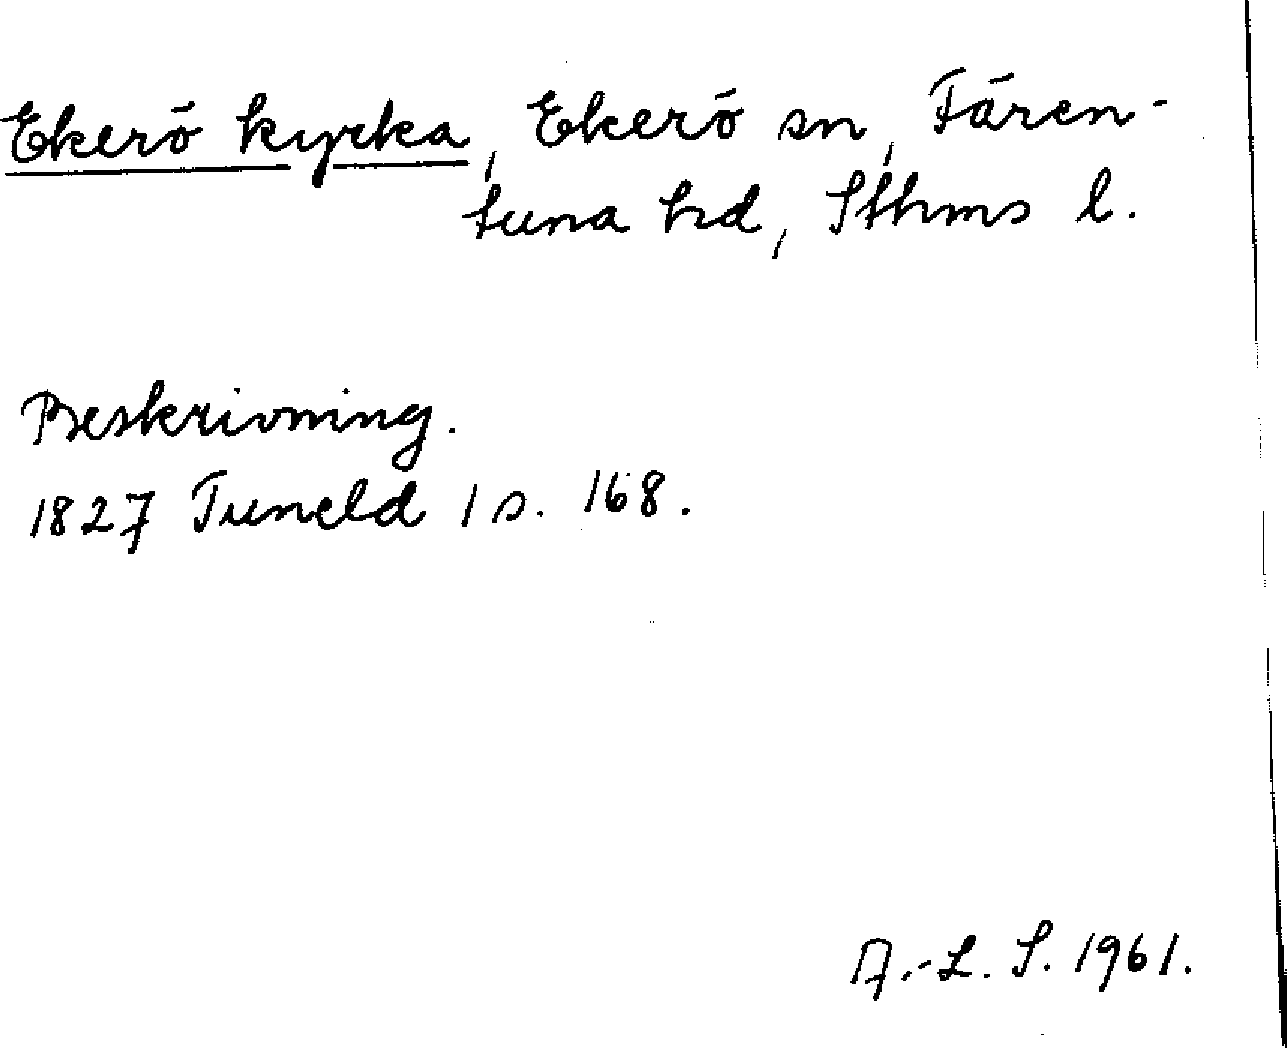 Ekerö kyrka, Ekerö sn, Fären-
tuna hd, Sthms l.
Beskrivning.
1827 Tuneld 1 s. 168.
A.-L. S. 1961.